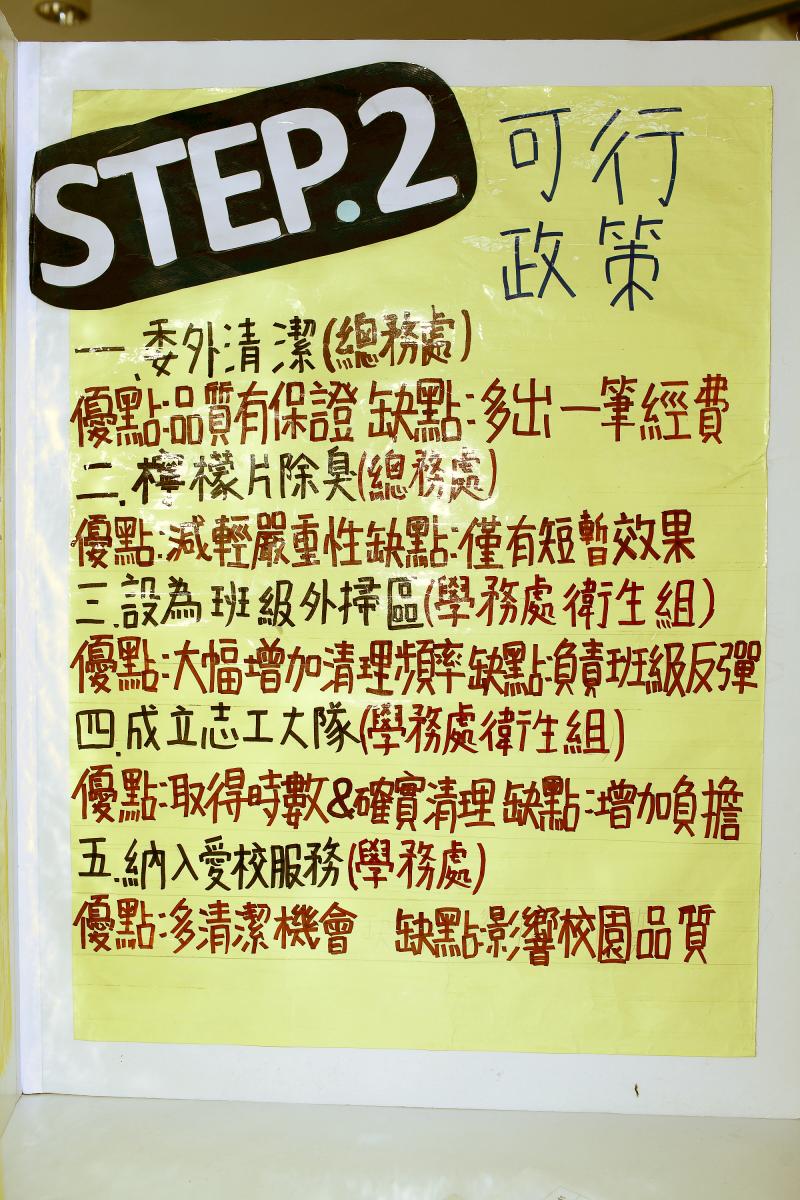 STEP.2
可行
政策
一.委外清潔(總務處)
優點:品質有保證 缺點:多出一筆經費
二.檸檬片除臭(總務處)
優點:減輕嚴重性缺點:僅有短暫效果
三.設為班級外掃區(學務處衛生組)
優點:大幅增加清理頻率 缺點:負責班級反彈
四.成立志工大隊(學務處衛生組)
優點:取得時數&確實清理 缺點:增加負擔
五.納入愛校服務(學務處)
優點:多清潔機會 缺點:影響校園品質